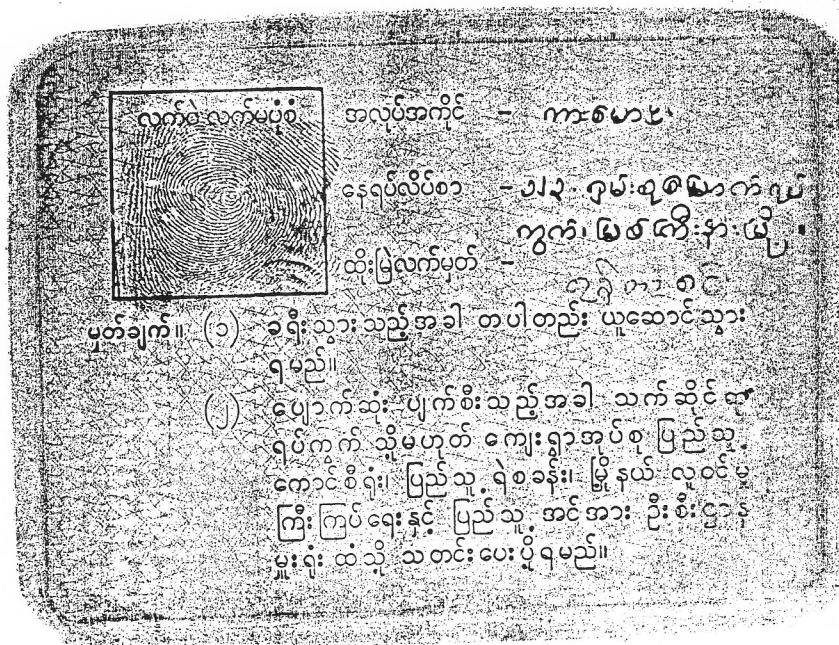 လက်ဝဲ လက်မပုံစံ
အလုပ်အကိုင် -
နေရပ်လိပ်စာ - ၁၂၃၊ ရှမ်းစုမြောက်ရပ်
ကွက်၊ မြစ်ကြီးနားမြို့။
ထိုးမြဲလက်မှတ် -
မှတ်ချက်။ (၁) ခရီးသွားသည့်အခါ တပါတည်း ယူဆောင်သွား
ရမည်။
(၂) ပျောက်ဆုံး ပျက်စီးသည့်အခါ သက်ဆိုင်ရာ
ရပ်ကွက် သို့မဟုတ် ကျေးရွာအုပ်စု ပြည်သူ့
ကောင်စီရုံး၊ ပြည်သူ့ရဲစခန်း၊ မြို့နယ် လူဝင်မှု
ကြီးကြပ်ရေးနှင့် ပြည်သူ့အင်အား ဦးစီးဌာန
မှူးရုံး ထံသို့ သတင်းပေးပို့ရမည်။